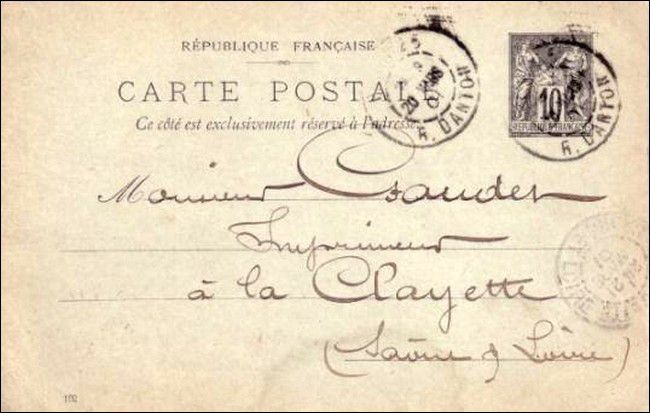 RÉPUBLIQUE FRANÇAISE
CARTE POSTALE
Ce côté est exclusivement réservé à l'adresse.
25
R. DANTON
10
REPUBLIQUE FRANÇAISE
R. DANTON
Monsieur
Imprimeur
à la Clayette
(Saône & Loire)
102